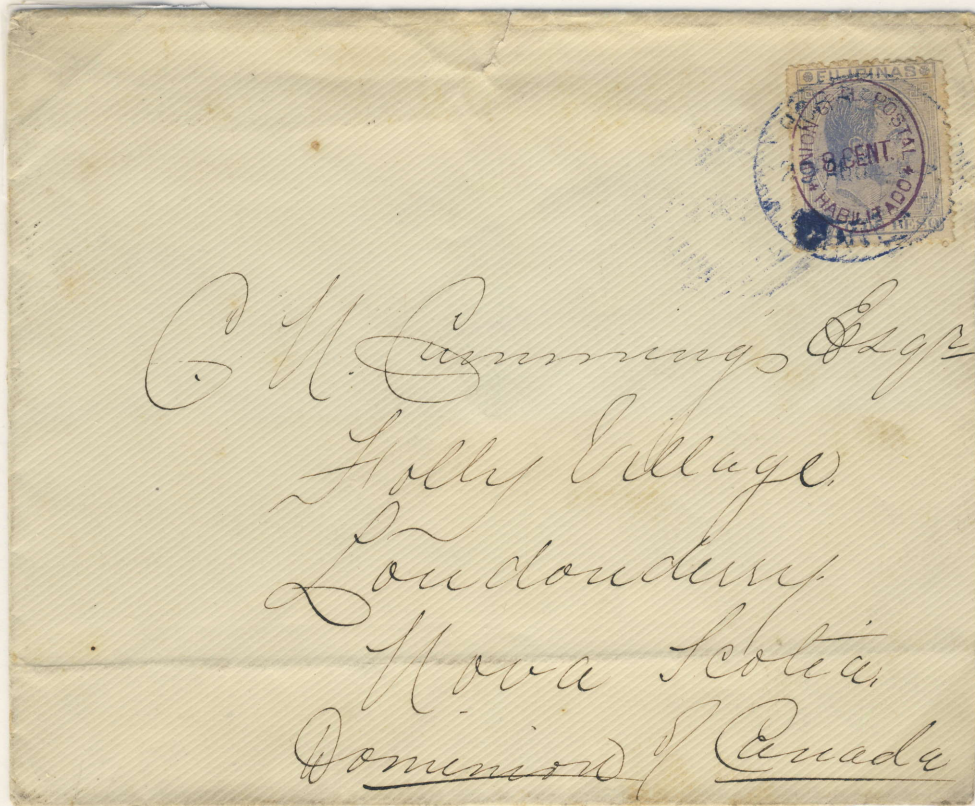 FILIPINAS
UNION GRAL POSTAL
8 CENT.
HABILITADO
C. N. Cummings Esqr
Folly Village
Londonderry
Nova Scotia
Dominion of Canada